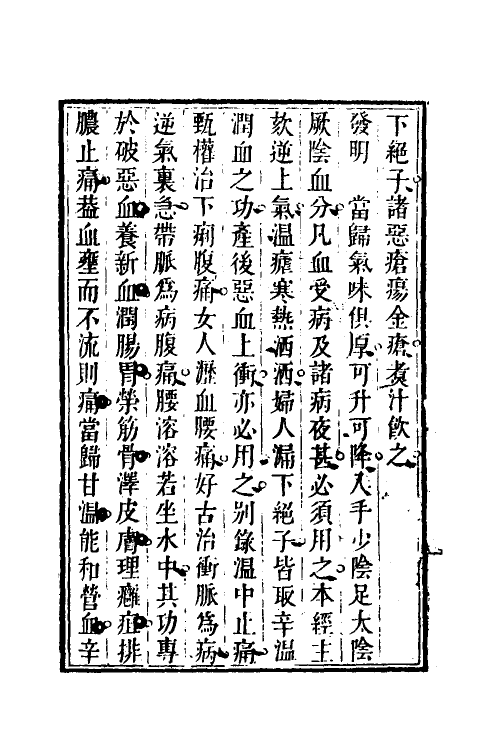 下絕子諸惡瘡瘍金瘡煮汁飲之
發明　當歸氣味俱厚可升可降入手少陰足太陰
厥陰血分凡血受病及諸病夜甚必須用之本經主
欬逆上氣溫瘧寒熱洒洒婦人漏下絕子皆取辛溫
潤血之功產後惡血上衝亦必用之別錄溫中止痛
甄權治下痢腹痛女人瀝血腰痛好古治衝脈為病
逆氣裏急帶脈爲病腹痛腰溶溶若坐水中其功專
於破惡血養新血潤腸胃榮筋骨澤皮膚理癰疽排
膿止痛葢血壅而不流則痛當歸甘溫能和營血辛